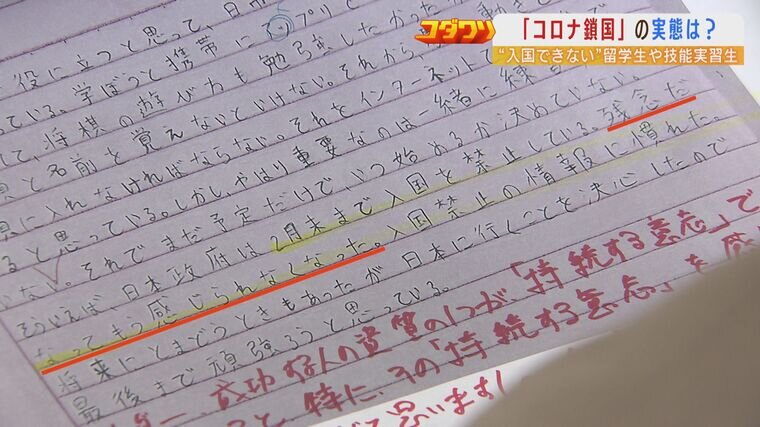 コダワリ
「コロナ鎖国」の実態は?
“入国できない”留学生や技能実習生
役に立つと思って、日
ている。学ぼうと携帯に アプリで
、将棋の遊び方も勉強したかった
と名前を覚えないといけない。それから、動き
に入れなければならない。それをインターネットで
ると思っている。しかしやはり重要なのは一緒に練
いない。それでまだ予定だけでいつ始めるか決めていない。
そういえば、日本政府は2月末まで入国を禁止している。残念だ
なってもう感じられなくなった。入国禁止の情報に慣れた。
将来にとまどうときもあったが日本に行くことを決心したので
最後まで頑張ろうと思っている。
成功する人の資質の1つが、「持続する意志」で
と、特に、その「持続する意志」を感
て思います